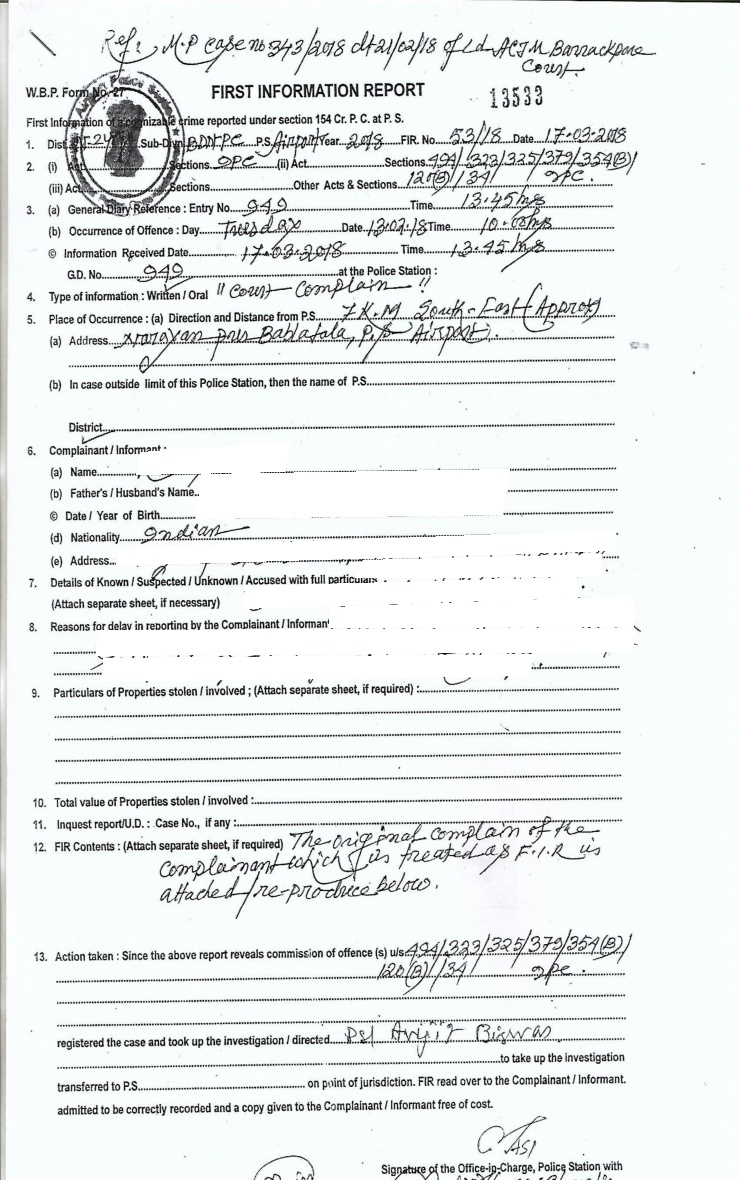 Ref: M.P case no 343/2018 dt 21/02/18 of Ld. ACJM Barrackpore
Court.
W.B.P. Form No.-27
FIRST INFORMATION REPORT
13533
First Information of a cognizable crime reported under section 154 Cr. P. C. at P. S.
1. Dist. Sub-Divn. BDNPC P.S. Airport Year 2018 FIR. No 53/18 Date 17.03.2018
2. (i) Act Sections IPC (ii) Act Sections 494/323/325/379/354(B)/
(iii) Act Sections Other Acts & Sections 120(B)/34 IPC.
3. (a) General Diary Reference : Entry No. 949 Time 13.45 hrs
(b) Occurence of Offence : Day Tuesday Date 13.02.18 Time
© Information Received Date 17.03.2018 Time 13.45 hrs
G.D. No. 949 at the Police Station :
4. Type of information : Written / Oral "Court Complain"
5. Place of Occurrence : (a) Direction and Distance from P.S. 7 K.M South-East (Approx)
(a) Address Narayan pur Bablatala, P.S Airport.
(b) In case outside limit of this Police Station, then the name of P.S.
District
6. Complainant / Informant :
(a) Name
(b) Father's / Husband's Name..
© Date / Year of Birth
(d) Nationality Indian
(e) Address...
7. Details of Known / Suspected / Unknown / Accused with full particulars
(Attach separate sheet, if necessary)
8. Reasons for delay in reporting by the Complainant / Informant
9. Particulars of Properties stolen / involved ; (Attach separate sheet, if required) :
10. Total value of Properties stolen / involved :
11. Inquest report/U.D. : Case No., if any :
12. FIR Contents : (Attach separate sheet, if required) The original complain of the
complainant which is treated as F.I.R is
attached/re-produce below.
13. Action taken : Since the above report reveals commission of offence (s) u/s 494/323/325/379/354(B)/
120(B)/34 IPC.
registered the case and took up the investigation / directed PSI Avijit Biswas
to take up the investigation
transferred to P.S. on point of jurisdiction. FIR read over to the Complainant / Informant.
admitted to be correctly recorded and a copy given to the Complainant / Informant free of cost.
ASI
Signature of the Office-in-Charge, Police Station with